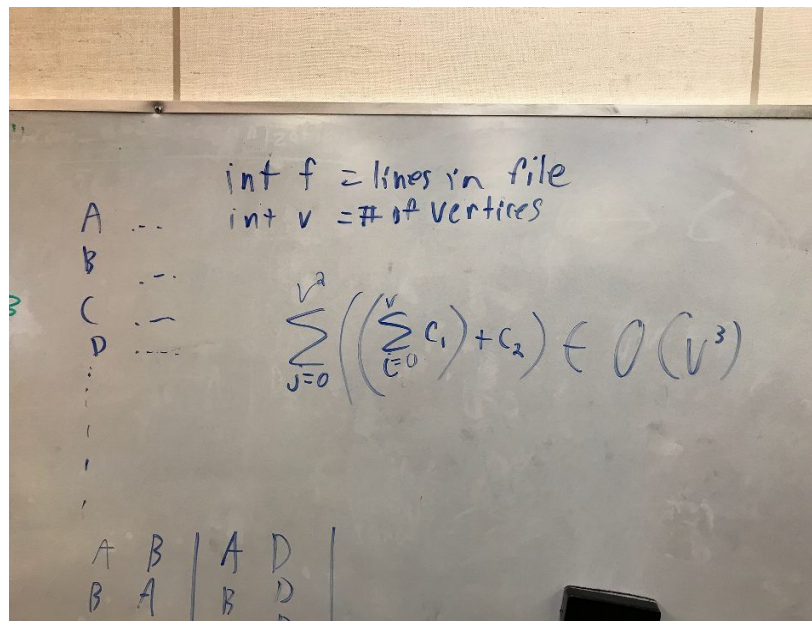 int f = lines in file
int v = # of vertices
A ...
B ...
C ...
D ....
∑_{j=0}^{V^2} ((∑_{i=0}^{V} C_1) + C_2) ∈ O(V^3)
A B | A D |
B A | B D |